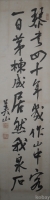 琴书四十年幾作山中客
一日茅棟成居然我泉石